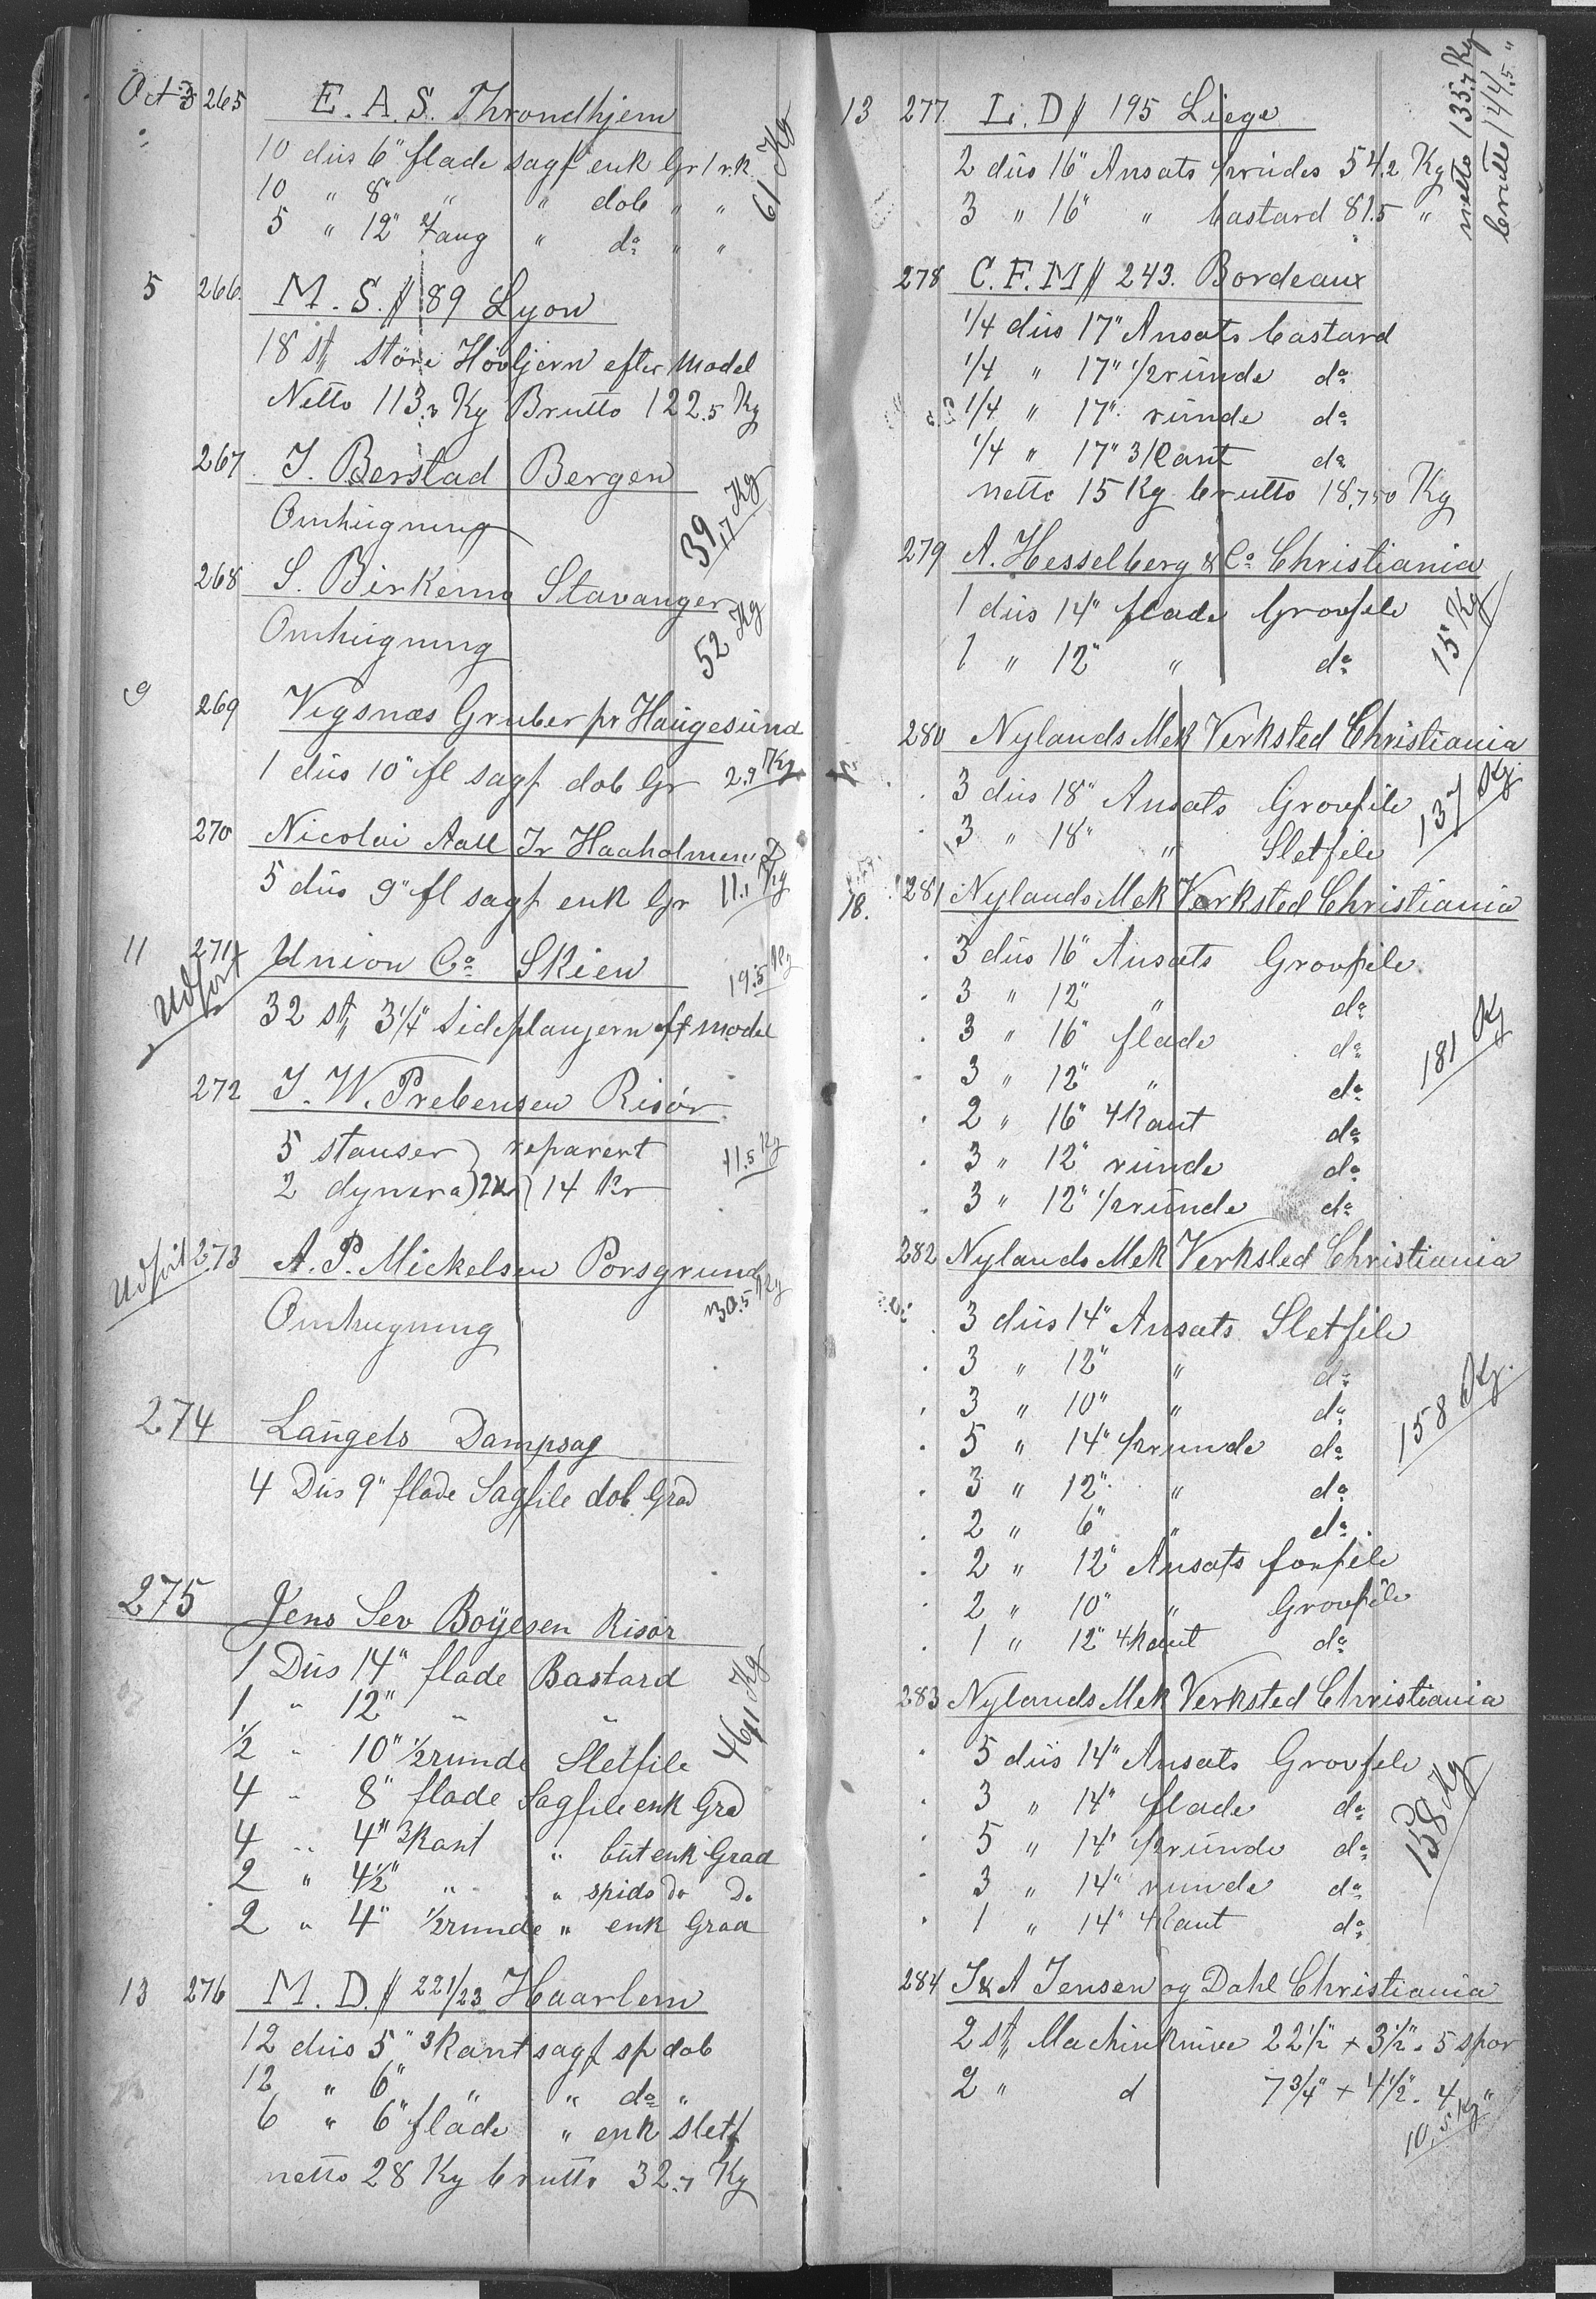 Oct 3 265 E. A. S. Throndhjem
10 dus 6" flade sagf enk Gr 1 r.k.
10 " 8" " " dob " "
5 " 12" " da " "
61 Kg
5 266. M. S. // 89 Lyon
18 st störe Hövljern efter Model
Netto 113.3 Kg Brutto 122.5 Kg
267 J. Berstad Bergen
Omhugning 39,17 Kg
268 S. Birkemo Stavanger
Omhugning 52 Kg
9 269 Vigsnæs Gruber pr Haugesund
1 dus 10" fl sagf dob Gr 2.9 Kg
270 Nicolai Aall Jr Haaholmen
5 dus 9" fl sagf enk Gr 11.1 Kg
11 271 Union Co Skien 19.5 Kg
Udført
32 st 3 1/4" Sideplanjern eft model
272 J. W. Prebensen Risör
5 stanser } reparert 11.5 Kg
2 dynera } 14 Kr
Udført 273 A. P. Mickelsen Porsgrund
Omhugning 30.5 Kg
274 Langels Dampsag
4 Dus 9" flade Sagfile dob Grad
275 Jens Sev Boyesen Risör
1 Dus 14" flade Bastard
1 " 12" " "
1/2 " 10" 1/2runde Sletfile
4 " 8" flade Sagfile enk Grd
4 " 4" 3kant " but enk Grad
2 " 4 1/2" " " spids Do Do
2 " 4" 1/2runde " enk Grad
13 276 M. D. // 221/23 Haarlem
12 dus 5" 3kant sagf sp dob
12 " 6" " " do "
6 " 6" flade " enk sletf
netto 28 Kg brutto 32.7 Kg
13 277 L. D // 195 Liege
2 dus 16" Ansats 54.2 Kg
3 " 16" " bastard 81.5 "
netto 135.7 Kg
brutto 144.5 "
278 C. F. M // 243. Bordeaux
1/4 dus 17" Ansats bastard
1/4 " 17" 1/2runde do
1/4 " 17" runde do
1/4 " 17" 3kant do
netto 15 Kg brutto 18,750 Kg
279 A. Hesselberg & Co Christiania
1 dus 14" flade Grovfile
1 " 12" " do
15 Kg
280 Nylands Mek Verksted Christiania
3 dus 18" Ansats Grovfile
3 " 18" " Sletfile
137 Kg.
18. 281 Nylands Mek Verksted Christiania
3 dus 16" Ansats Grovfile
3 " 12" " do
3 " 16" flade do
3 " 12" " do
2 " 16" 4kant do
3 " 12" runde do
3 " 12" 1/2runde do
181 Kg
282 Nylands Mek Verksted Christiania
3 dus 14" Ansats Sletfile
3 " 12" " do
3 " 10" " do
5 " 14" 1/2runde do
3 " 12" " do
2 " 6" " do
2 " 12" Ansats forfile
2 " 10" " Grovfile
1 " 12" 4kant do
158 Kg.
283 Nylands Mek Verksted Christiania
5 dus 14" Ansats Grovfile
3 " 14" flade do
5 " 14" 1/2runde do
3 " 14" runde do
1 " 14" 4kant do
158 Kg
284 J & A Jensen og Dahl Christiania
2 st Machinknive 22 1/2" + 3 1/2" . 5 spor
2 " d 7 3/4" + 4 1/2" . 4 "
10,5 Kg